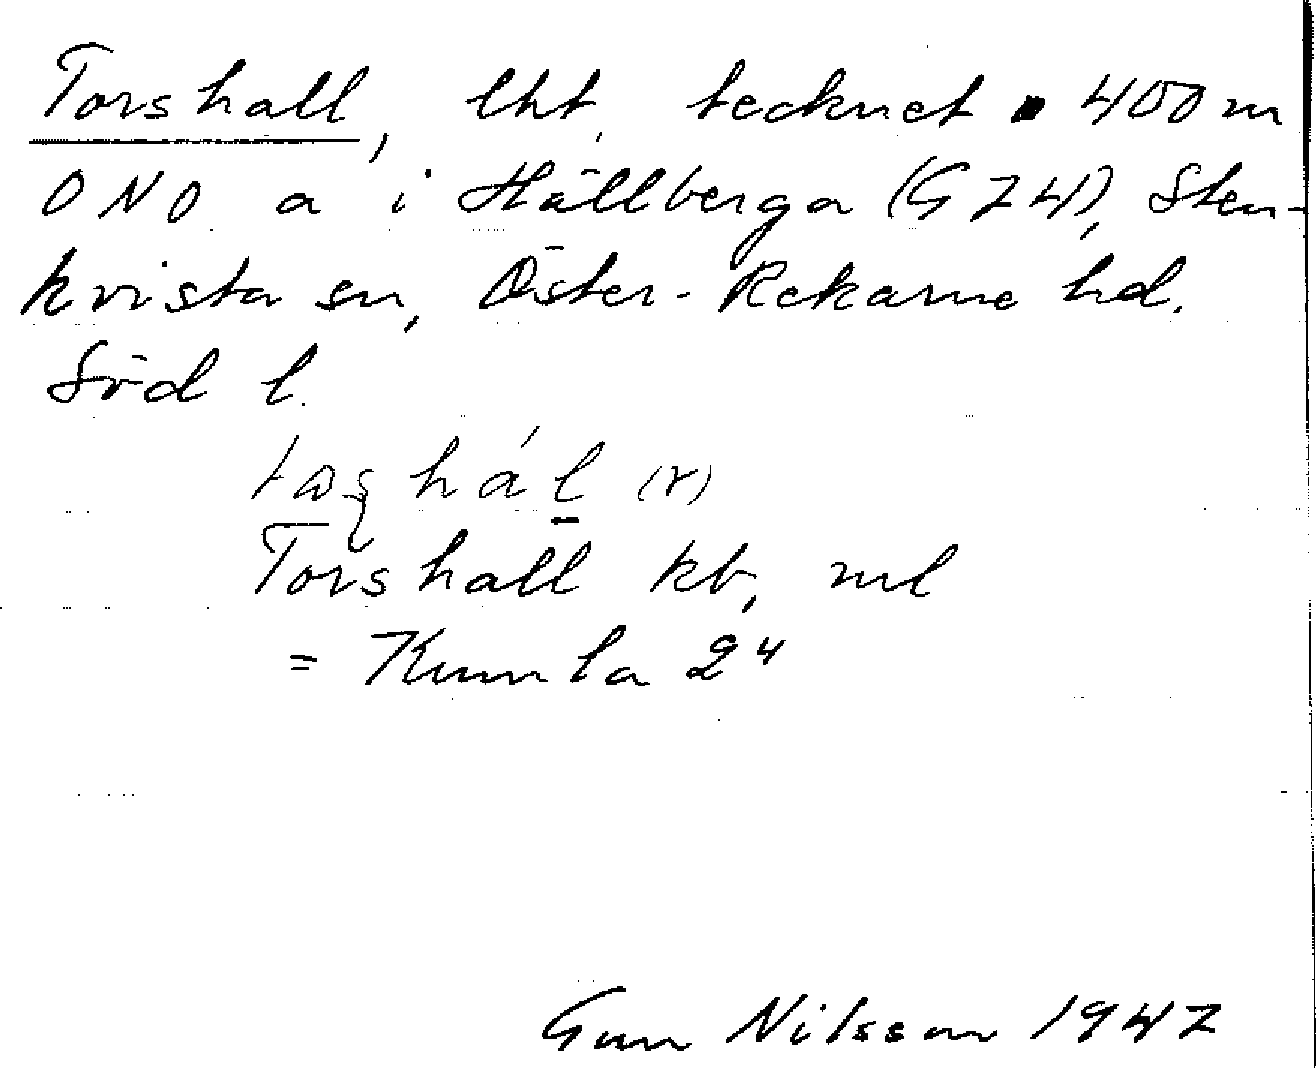 Torshall, lht, tecknet • 400 m
ONO a i Hällberga (G 74), Sten-
kvista sn, Öster-Rekarne hd.
Söd l.
hál (r)
Torshall kb, ml
= Kumla 2⁴
Gun Nilsson 1947